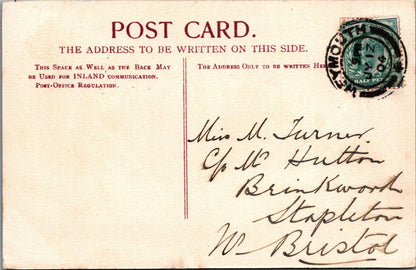 POST CARD.
THE ADDRESS TO BE WRITTEN ON THIS SIDE.
This Space as Well as the Back May
be Used for INLAND communication.
Post-Office Regulation.
The Address Only to be written Her
WEYMOUTH
MY 12
04
HALF PE
Miss M. Turner
C/o Mr Hutton
Brinkworth
Stapleton
Nr Bristol